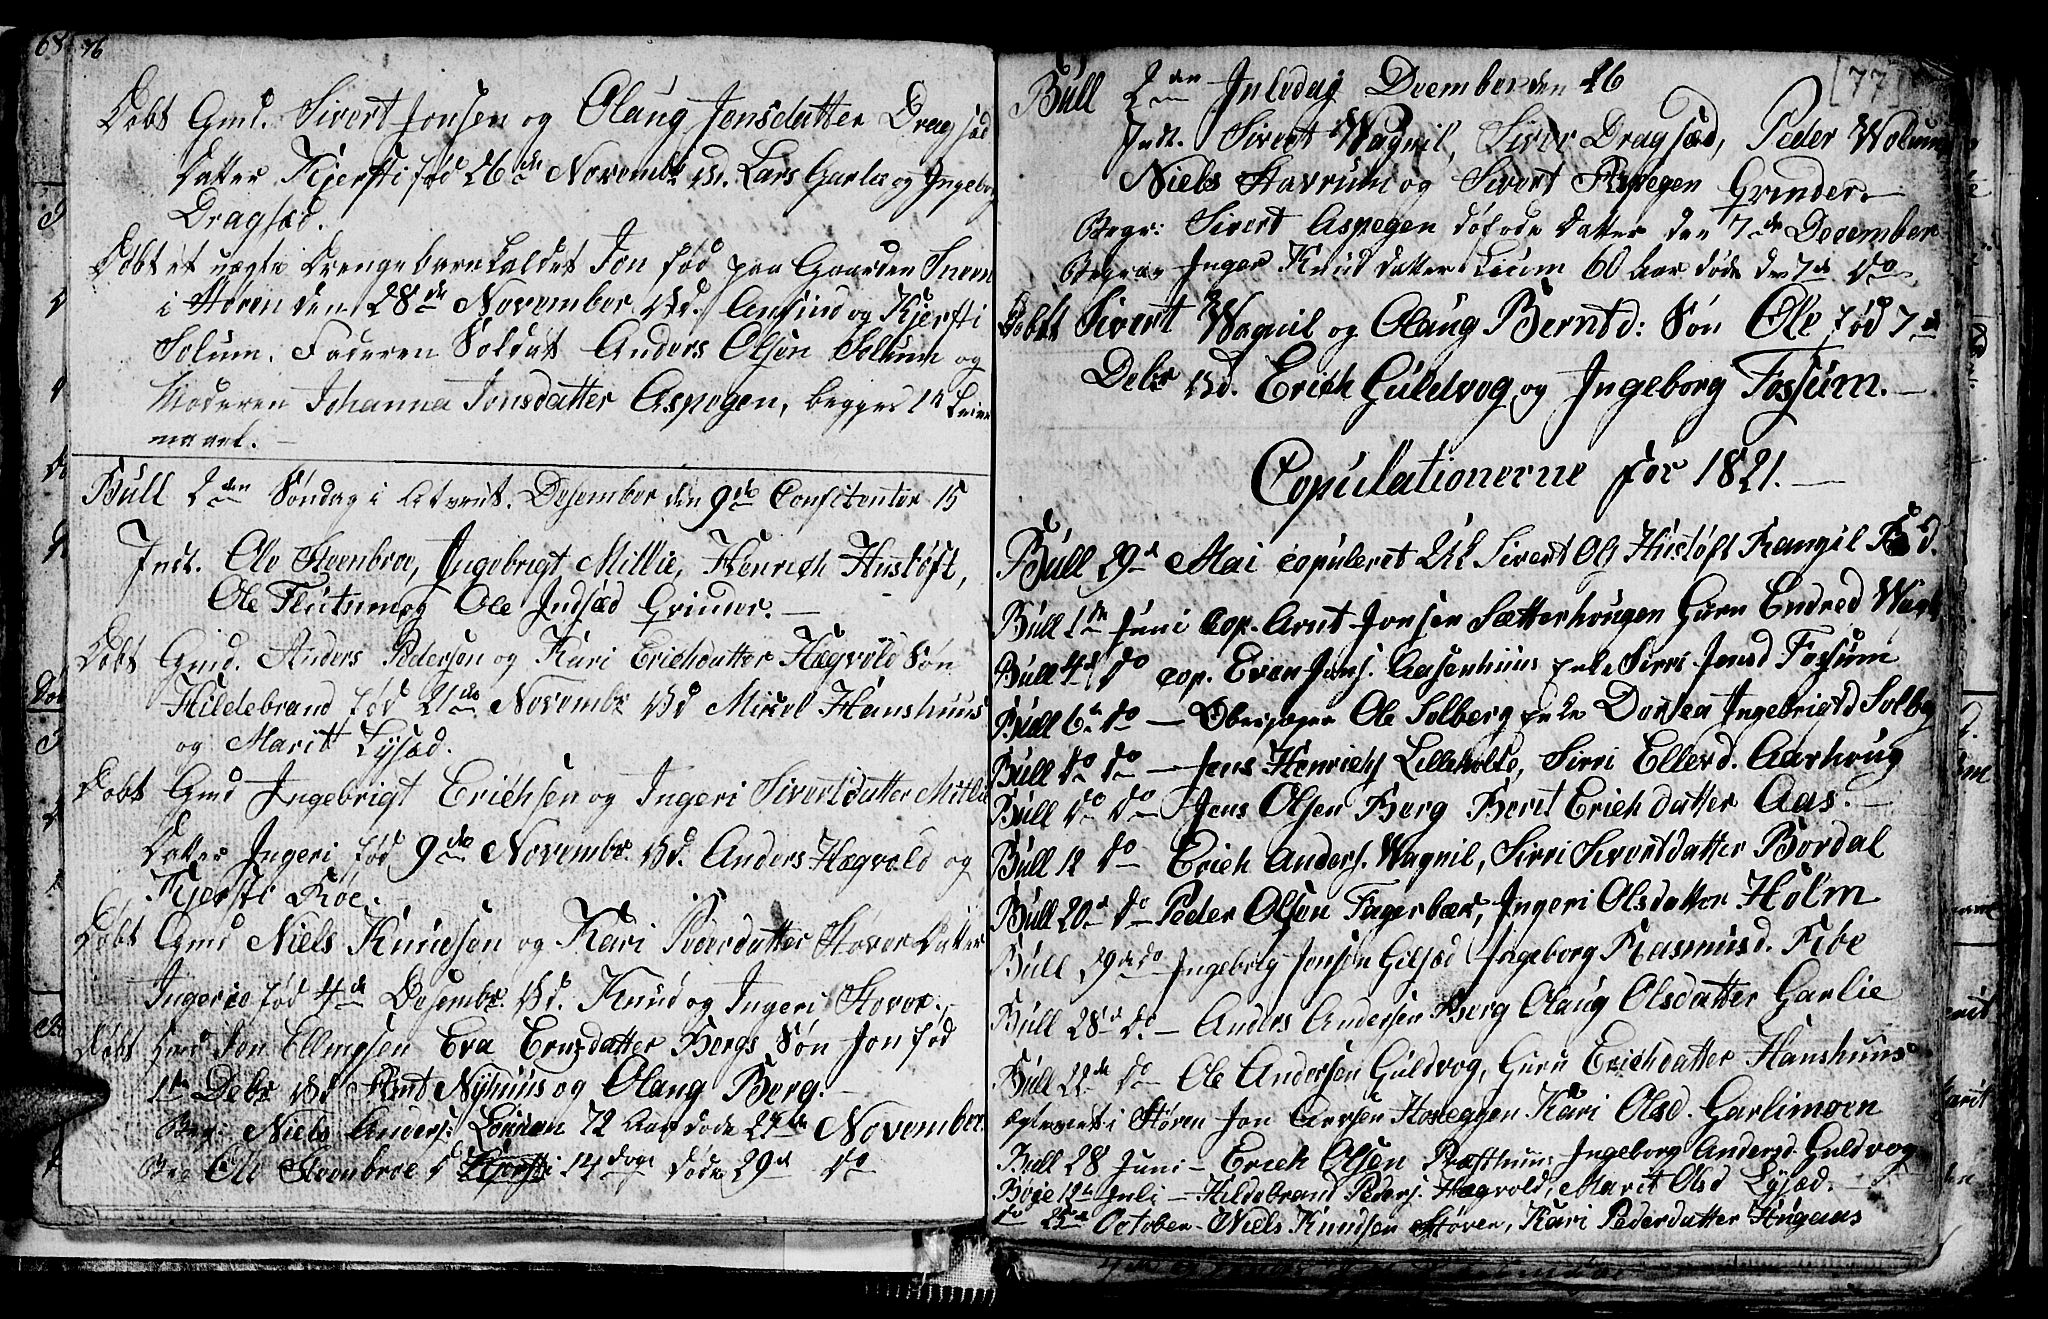 76
Døbt Gmd. Sivert Jonsen og Olaug Jonsdatter Dragsæd
Datter Kjersti fød 26de Novembr Vd. Lars Garlie og Ingebor
Dragsæd.
Døbt et uægte Drengebarn kaldet Jon fød paa Gaarden
i Støren den 28de November Vd. og Kjersti
Solum. Faderen Soldat Anders Olsen Solum og
Moderen Johanna Jonsdatter Aspegen, begges 1te Leier
maael.
Bull 2den Søndag i Advent. Desember den 9de Confitenter 15
Int. Ole Steenbroe, Ingebrigt Millie, Henrich Hustøft,
Ole Flutum og Ole Indsæd Grinder.
Døbt Gmd. Anders Pedersen og Kari Erichdatter Hægvold Søn
Hildebrand fød 21de Novembr Vd Hanshuus
og Marit Lysæd.
Døbt Gmd Ingebrigt Erichsen og Ingeri Sivertsdatter Millie
Datter Ingeri fød 9de Novembr. Vd. Anders Hægvold og
Kjersti Røe.
Døbt Gmd Niels Knudsen og Kari Pedersdatter Støver Datter
fød 4de Desembr. Vd. Knud og Ingeri Støvre.
Døbt Gmd Jon Ellingsen Eva Datter Bergs Søn Jon fød
1te Debr Vd Arnt Nyhuus og Olaug Berg.
Begr: Niels Anders: 72 Aar døde 27de November
Beg Ole Steenbroe d Kjersti 14 dage døde 29d do
[77]
Bull 2den Juledag Desember den 26
Int. Sivert Wagnil, Siver Dragsæd, Peder Wolum
Niels Stavrum og Sivert Aspegen Grinder.
Begr: Sivert Aspegen døføde Datter den 7de Desember
Begrav Inger Knud datter Lium 60 Aar døde den 7de do
Døbtt Sivert Wagnil og Olaug Berntd: Søn Ole fød 7de
Debr Vd. Erich Guldvog og Ingeborg Fossum.
Copulationerne for 1821.
Bull 29d Mai copuleret Sivert Ols Hustøft Rangil
Bull 1de Juni cop. Arnt Jonsen Sætterhougen Guru Endred
Bull 4d do cop. Even Jons. Aasenhuus enke Sirri Jonsd Fossum
Bull 6te do — Ole Solberg enke Dortea Ingebrigtd Solberg
Bull do do — Jens Henrichs Lilleholte, Sirri Ellevd. Aarhoug
Bull do do — Jens Olsen Berg Berit Erich datter Aas.
Bull 12 do Erich Anders. Wagnil, Sirri Sivertdatter Bordal
Bull 20d do Peder Olsen Fagerbær, Ingeri Olsdatter Holm
Bull 19de do Ingebrig Jonsen Gilsæd Ingeborg Rasmusd. Foe
Bull 28d do — Anders Andersen Berg Olaug Olsdatter Garlie
Bull 22de do Ole Andersen Guldvog, Guru Erichdatter Hanshuus
i Støren Jon Arvesen Kari Olsd. Garlimoen
Bull 28 Juni — Erich Olsen Præsthuus Ingeborg Andersd Guldvog
Bøje 12te Juli — Hildebrand Peders. Hægvold, Marit Olsd Lysæd.
do 25de October — Niels Knudsen Støren, Kari Pedersdatter Hugaas